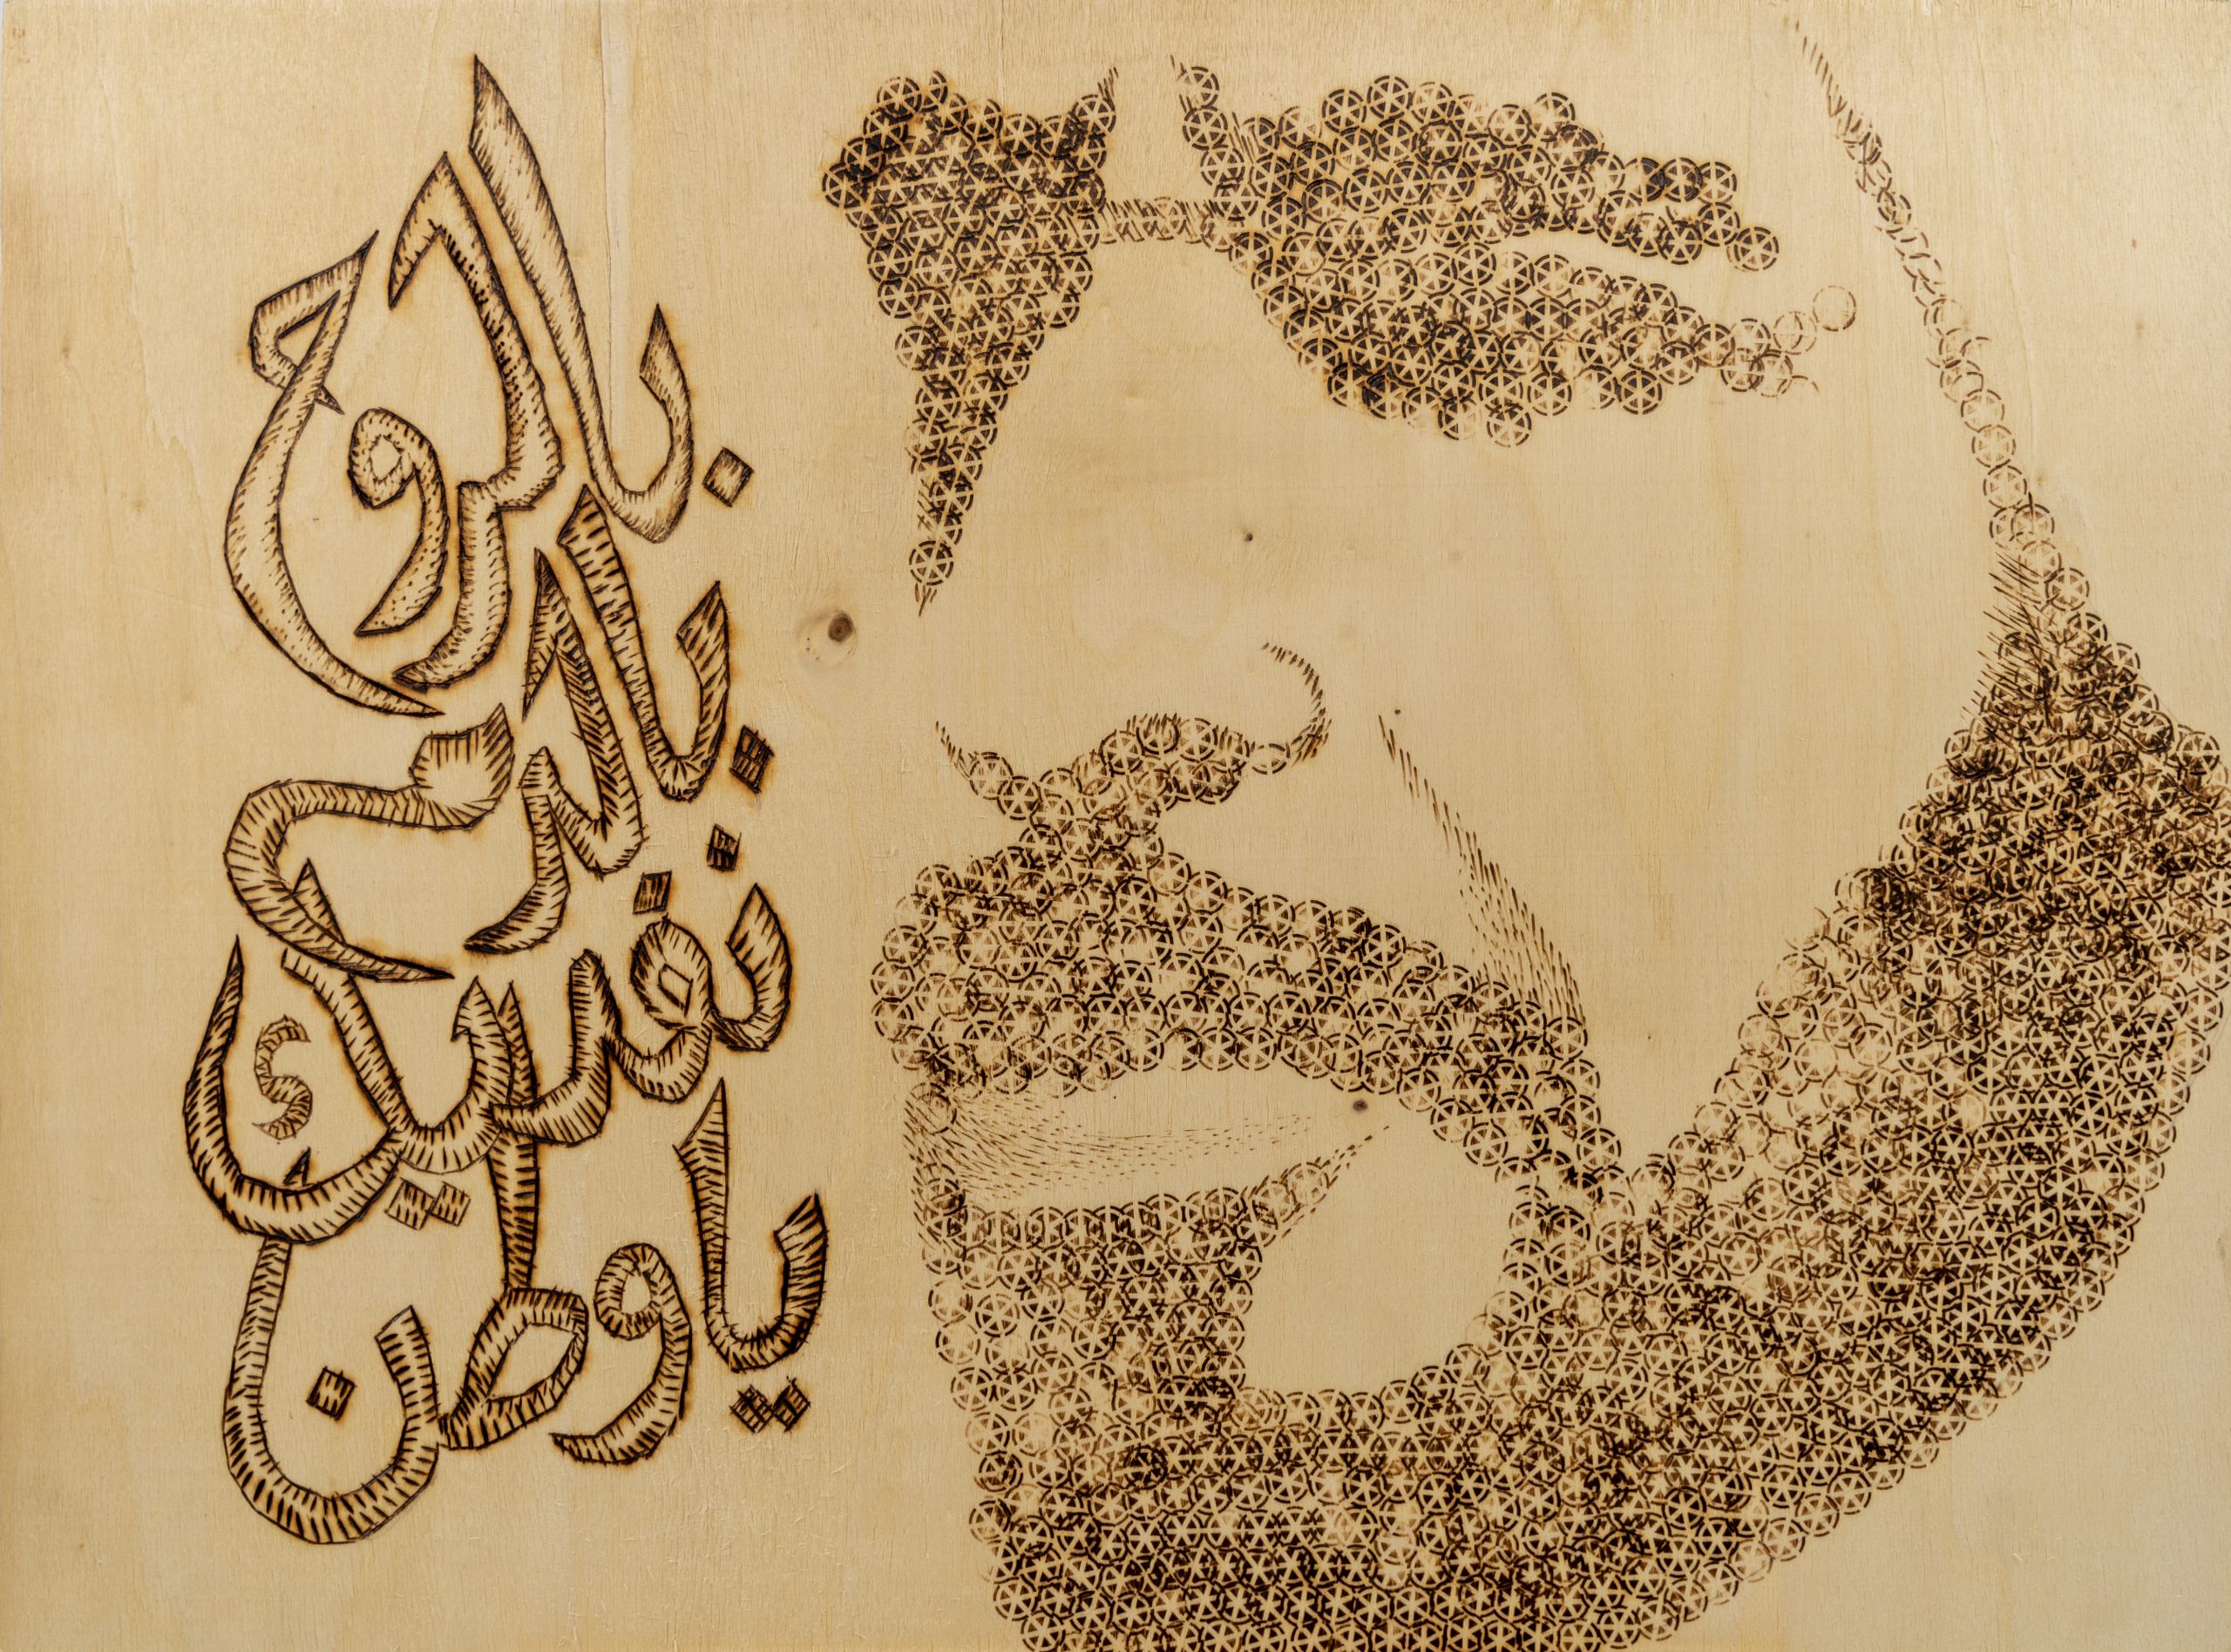 بالروح
بالدم
نفديك
يا وطن